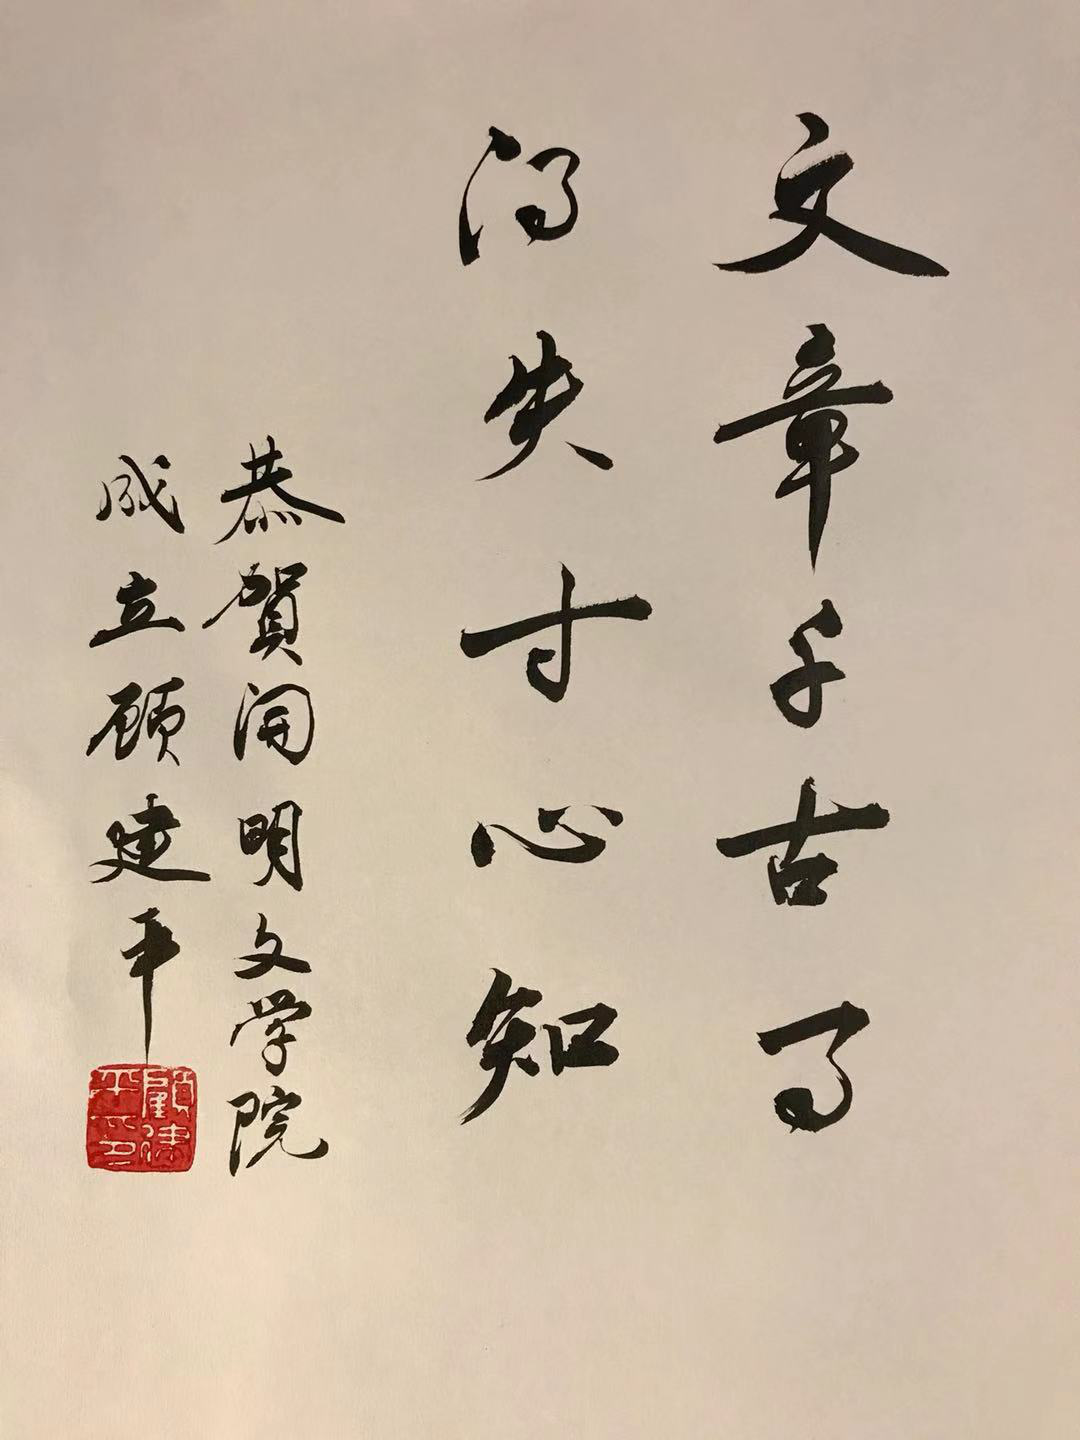 文章千古事
得失寸心知
恭賀开明文学院
成立顾建平
顧建平印